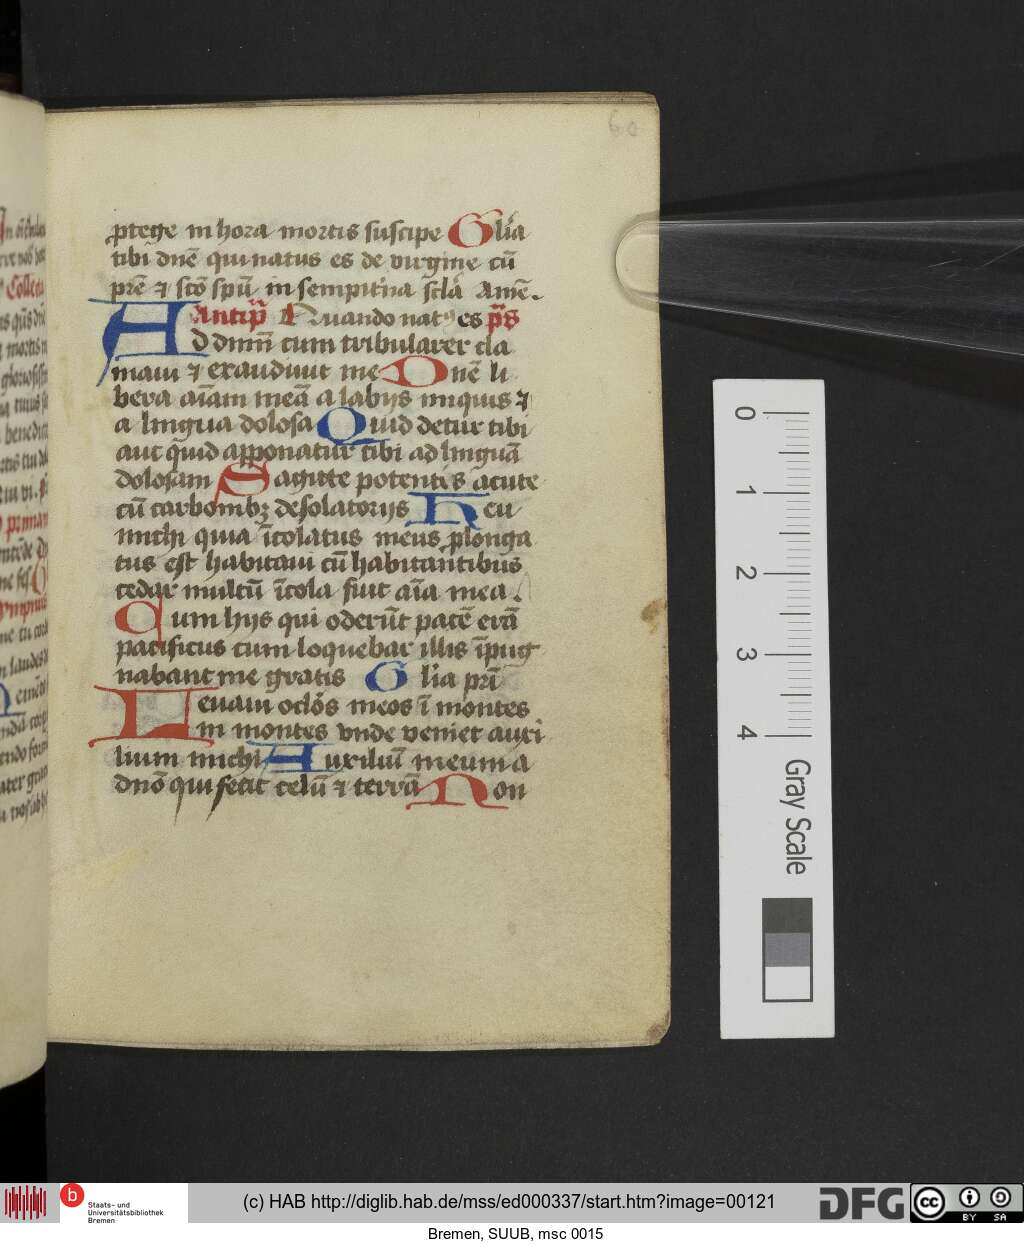 60
ꝓtege in hora mortis suscipe Glīa
tibi dn̄e qui natus es de virgine cū
pr̄e ⁊ sctō spū in sempit'na scl̄a Amē.
Antip̄ Quando natꝰ es ps̄
Ad dnm̄ cum tribularer cla
maui ⁊ exaudiuit me Dnē li
bera aīam meā a labijs iniquis ⁊
a lingua dolosa Quid detur tibi
aut quid apponatur tibi ad linguā
dolosam Sagitte potentis acute
cū carbonibꝫ desolatorijs Heu
michi quia īcolatus meus ꝓlonga
tus est habitaui cū habitantibus
cedar multū īcola fuit aīa mea.
Cum hijs qui oderūt pacē erā
pacificus cum loquebar illis īpug
nabant me gratis Glīa pr̄i
Leuaui oclōs meos ī montes
in montes vnde veniet auxi
lium michi Auxiliū meum a
dnō qui fecit celū ⁊ terrā Non
0
1
2
3
4
Gray Scale
b
Staats- und
Universitätsbibliothek
Bremen
(c) HAB http://diglib.hab.de/mss/ed000337/start.htm?image=00121
DFG
cc
BY SA
Bremen, SUUB, msc 0015